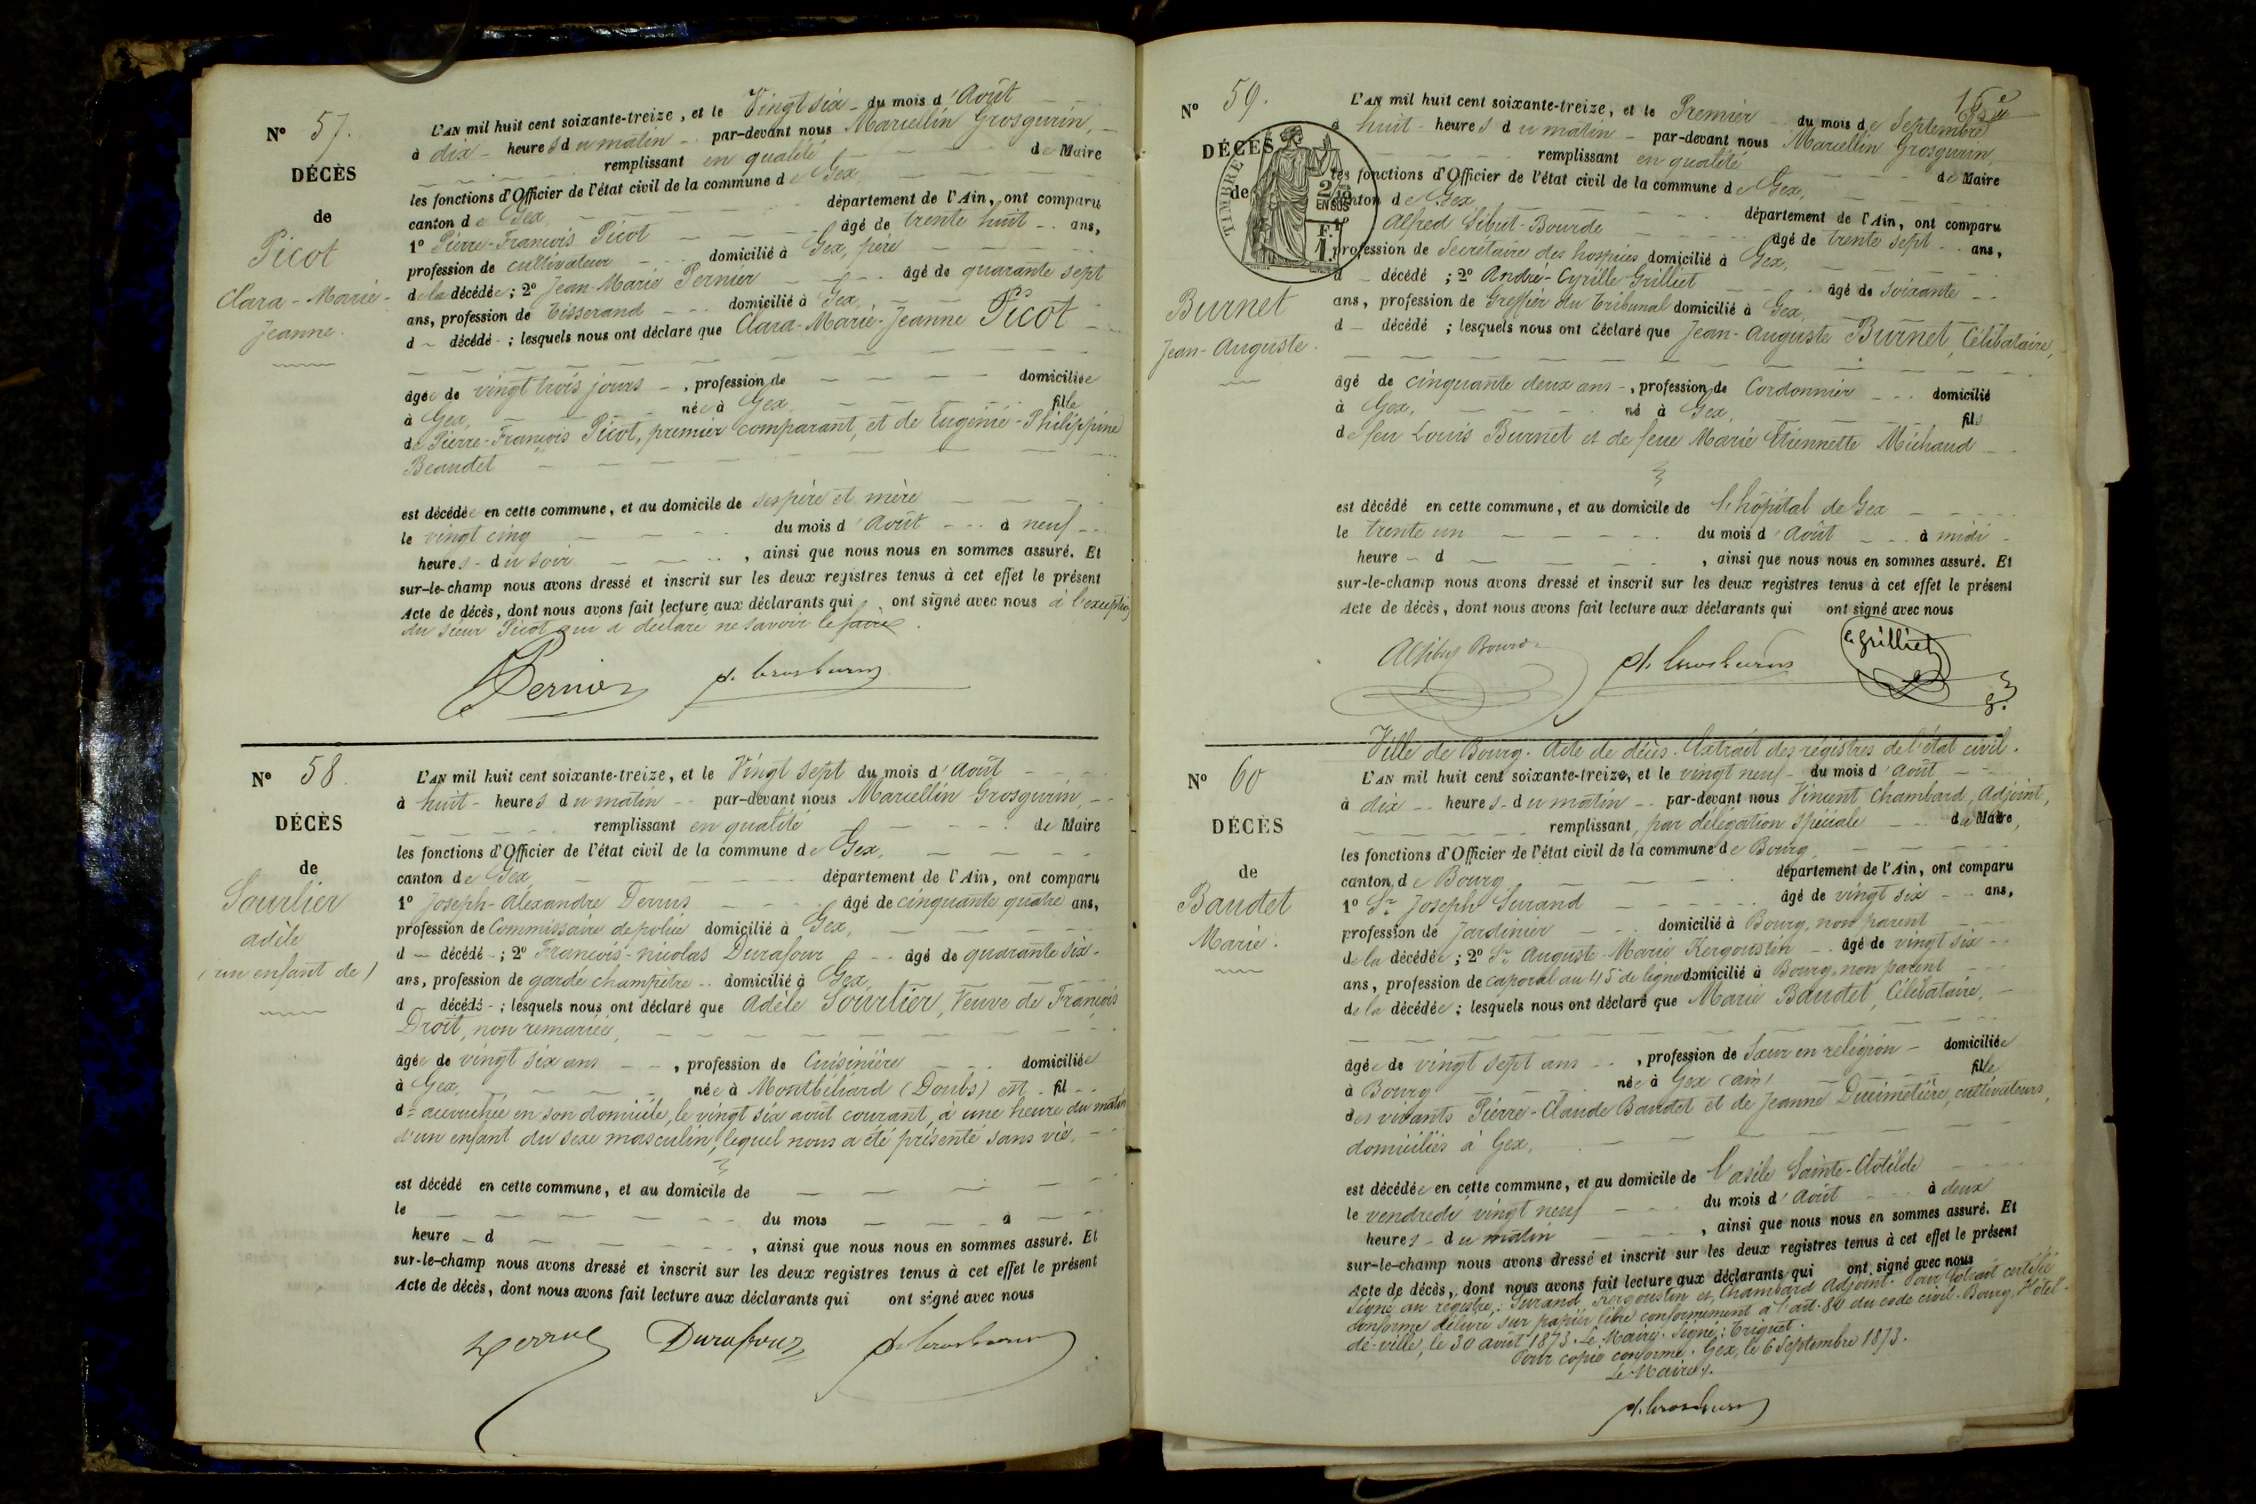 N° 57.
DÉCÈS
de
Picot
Clara-Marie-
Jeanne.
L'AN mil huit cent soixante-treize, et le Vingt six du mois d'Août
à dix heures du matin par-devant nous Marcellin Grosgurin,
remplissant en qualité de Maire
les fonctions d'Officier de l'état civil de la commune de Gex
canton de Gex département de l'Ain, ont comparu
1° Pierre-François Picot âgé de trente huit ans,
profession de cultivateur domicilié à Gex, père
de la décédée; 2° Jean-Marie Pernier âgé de quarante sept
ans, profession de Tisserand domicilié à Gex,
d décédé; lesquels nous ont déclaré que Clara-Marie-Jeanne Picot
âgée de vingt trois jours, profession de domiciliée
à Gex, née à Gex, fille
de Pierre-François Picot, premier comparant, et de Eugénie-Philippine
Beaudet
est décédée en cette commune, et au domicile de ses père et mère
le vingt cinq du mois d'Août à neuf
heures du soir, ainsi que nous nous en sommes assuré. Et
sur-le-champ nous avons dressé et inscrit sur les deux registres tenus à cet effet le présent
Acte de décès, dont nous avons fait lecture aux déclarants qui ont signé avec nous à l'exception
du sieur Picot qui a déclaré ne savoir le faire.
Pernier
N° 58.
DÉCÈS
de
Sourlier
adèle
(un enfant de)
L'AN mil huit cent soixante-treize, et le Vingt sept du mois d'Août
à huit heures du matin par-devant nous Marcellin Grosgurin,
remplissant en qualité de Maire
les fonctions d'Officier de l'état civil de la commune de Gex,
canton de Gex département de l'Ain, ont comparu
1° Joseph-Alexandre Derrus âgé de cinquante quatre ans,
profession de Commissaire de police domicilié à Gex,
d décédé; 2° François-nicolas Durafour âgé de quarante six
ans, profession de garde champêtre domicilié à Gex
d décédé; lesquels nous ont déclaré que Adèle Sourlier, Veuve de François
Droit, non remariée,
âgée de vingt six ans, profession de Cuisinière domiciliée
à Gex, née à Montbéliard (Doubs) est fil
d accouchée en son domicile, le vingt six août courant, à une heure du matin
d'un enfant du sexe masculin, lequel nous a été présenté sans vie,
est décédé en cette commune, et au domicile de
le du mois à
heure d, ainsi que nous nous en sommes assuré. Et
sur-le-champ nous avons dressé et inscrit sur les deux registres tenus à cet effet le présent
Acte de décès, dont nous avons fait lecture aux déclarants qui ont signé avec nous
Durafour
N° 59.
DÉCÈS
de
TIMBRE
2/10 EN SUS
1 F.
Burnet
Jean-Auguste.
L'AN mil huit cent soixante-treize, et le Premier du mois de Septembre
à huit heures du matin par-devant nous Marcellin Grosgurin,
remplissant en qualité de Maire
les fonctions d'Officier de l'état civil de la commune de Gex,
canton de Gex département de l'Ain, ont comparu
1° Alfred Sibut-Bourde âgé de trente sept ans,
profession de Secrétaire des hospices domicilié à Gex,
d décédé; 2° André-Cyrille Grilliet âgé de soixante
ans, profession de Greffier du tribunal domicilié à Gex,
d décédé; lesquels nous ont déclaré que Jean-Auguste Burnet, Célibataire,
âgé de cinquante deux ans, profession de Cordonnier domicilié
à Gex, né à Gex, fils
de feu Louis Burnet et de feue Marie Etiennette Michaud
est décédé en cette commune, et au domicile de l'hôpital de Gex
le trente un du mois d'Août à midi
heure d, ainsi que nous nous en sommes assuré. Et
sur-le-champ nous avons dressé et inscrit sur les deux registres tenus à cet effet le présent
Acte de décès, dont nous avons fait lecture aux déclarants qui ont signé avec nous
C. Grilliet
Ville de Bourg. Acte de décès. Extrait des régistres de l'état civil.
N° 60
DÉCÈS
de
Baudet
Marie.
L'AN mil huit cent soixante-treize, et le vingt neuf du mois d'Août
à dix heures du matin par-devant nous Vincent Chambard, Adjoint,
remplissant, par délégation spéciale du Maire,
les fonctions d'Officier de l'état civil de la commune de Bourg
canton de Bourg département de l'Ain, ont comparu
1° Sr Joseph Surand âgé de vingt six ans,
profession de Jardinier domicilié à Bourg, non parent
de la décédée; 2° Sr Auguste-Marie Kergoustin âgé de vingt six
ans, profession de caporal au 45e de ligne domicilié à Bourg, non parent
de la décédée; lesquels nous ont déclaré que Marie Baudet, Célibataire,
âgée de vingt sept ans, profession de Sœur en religion domiciliée
à Bourg née à Gex (ain) fille
des vivants Pierre-Claude Baudet et de Jeanne Ducimetière, cultivateurs,
domiciliés à Gex,
est décédée en cette commune, et au domicile de l'asile Sainte-Clotilde
le vendredi vingt neuf du mois d'Août à deux
heures du matin, ainsi que nous nous en sommes assuré. Et
sur-le-champ nous avons dressé et inscrit sur les deux registres tenus à cet effet le présent
Acte de décès, dont nous avons fait lecture aux déclarants qui ont signé avec nous
Signé au registre: Surand, Kergoustin et Chambard Adjoint. Pour Extrait certifié
conforme délivré sur papier libre conformément à l'art. 80 du code civil. Bourg, Hôtel-
de-ville, le 30 août 1873. Le Maire. Signé: Triquet.
Pour copie conforme. Gex, le 6 Septembre 1873.
Le Maire.